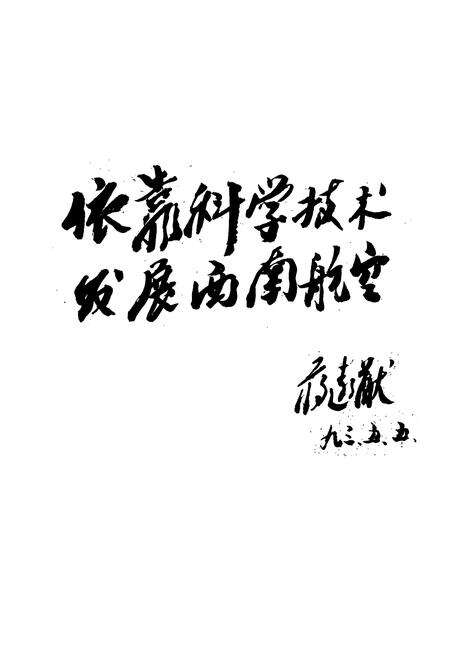 依靠科学技术
发展西南航空
九三、五、五、